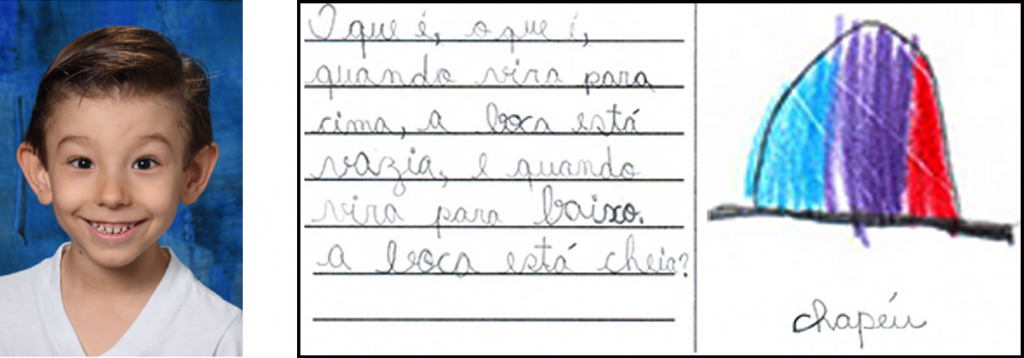 O que é, o que é,
quando vira para
cima, a boca está
vazia, e quando
vira para baixo.
a boca está cheia?
chapéu